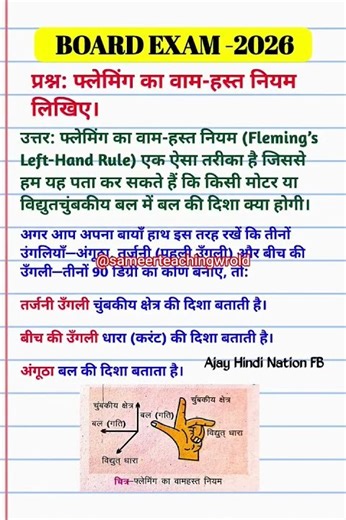 BOARD EXAM -2026
प्रश्न: फ्लेमिंग का वाम-हस्त नियम
लिखिए।
उत्तर: फ्लेमिंग का वाम-हस्त नियम (Fleming's
Left-Hand Rule) एक ऐसा तरीका है जिससे
हम यह पता कर सकते हैं कि किसी मोटर या
विद्युतचुंबकीय बल में बल की दिशा क्या होगी।
अगर आप अपना बायाँ हाथ इस तरह रखें कि तीनों
उंगलियाँ—अंगूठा, तर्जनी (पहली उँगली) और बीच की
@sameerteachingwrold
उँगली—तीनों 90 डिग्री का कोण बनाएं, तो:
तर्जनी उँगली चुंबकीय क्षेत्र की दिशा बताती है।
बीच की उँगली धारा (करंट) की दिशा बताती है।
अंगूठा बल की दिशा बताता है।
Ajay Hindi Nation FB
चुंबकीय क्षेत्र
बल (गति)
विद्युत् धारा
चुंबकीय क्षेत्र
बल (गति)
विद्युत् धारा
चित्र–फ्लेमिंग का वामहस्त नियम